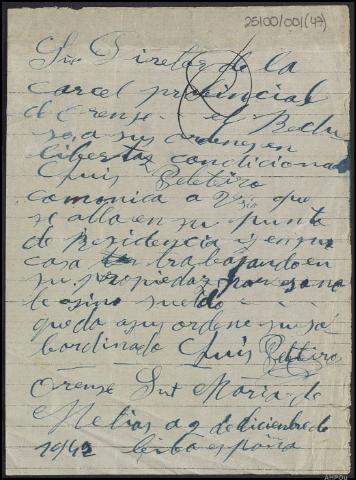 25100/001(47)
Sr Diretor de la
carcel provincial
de orense. el Reclu
so, a sus ordenes en
libertaz condiciona
Luis Peteiro
comonica a que
se alla en su punto
de Residencia y en su
casa trabajando en
su propiedaz por eso no
te gino sueldo - -
queda a sus ordene su sa
bordinado Luis Peteiro
Orense Snt Maria de
Melias a 2 de diciembre de
1942 biba españa
AHPOu